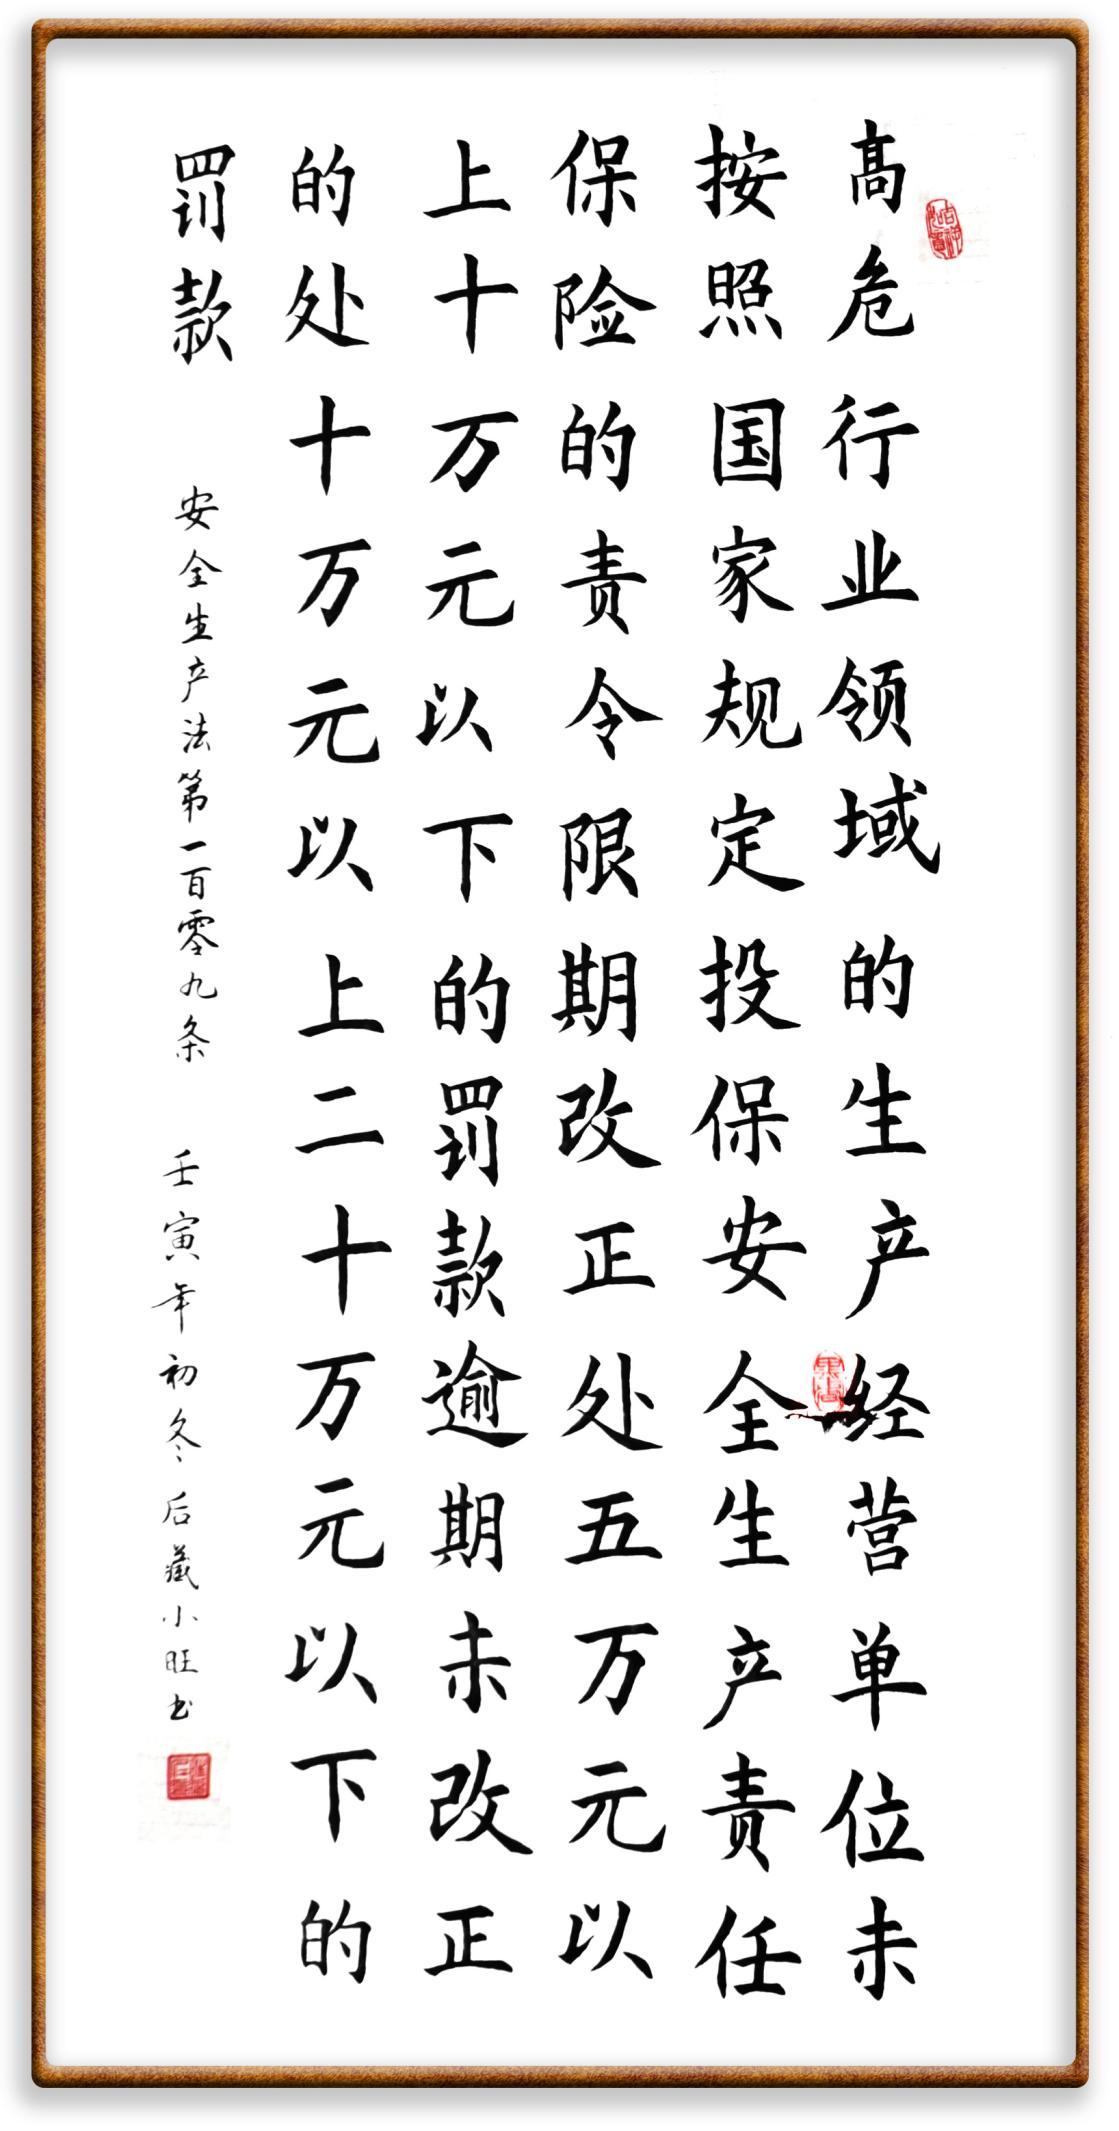 髙危行业领域的生产经营单位未
按照国家规定投保安全生产责任
保险的责令限期改正处五万元以
上十万元以下的罚款逾期未改正
的处十万元以上二十万元以下的
罚款
安全生产法第一百零九条 壬寅年初冬后藏小旺书
吉祥如意